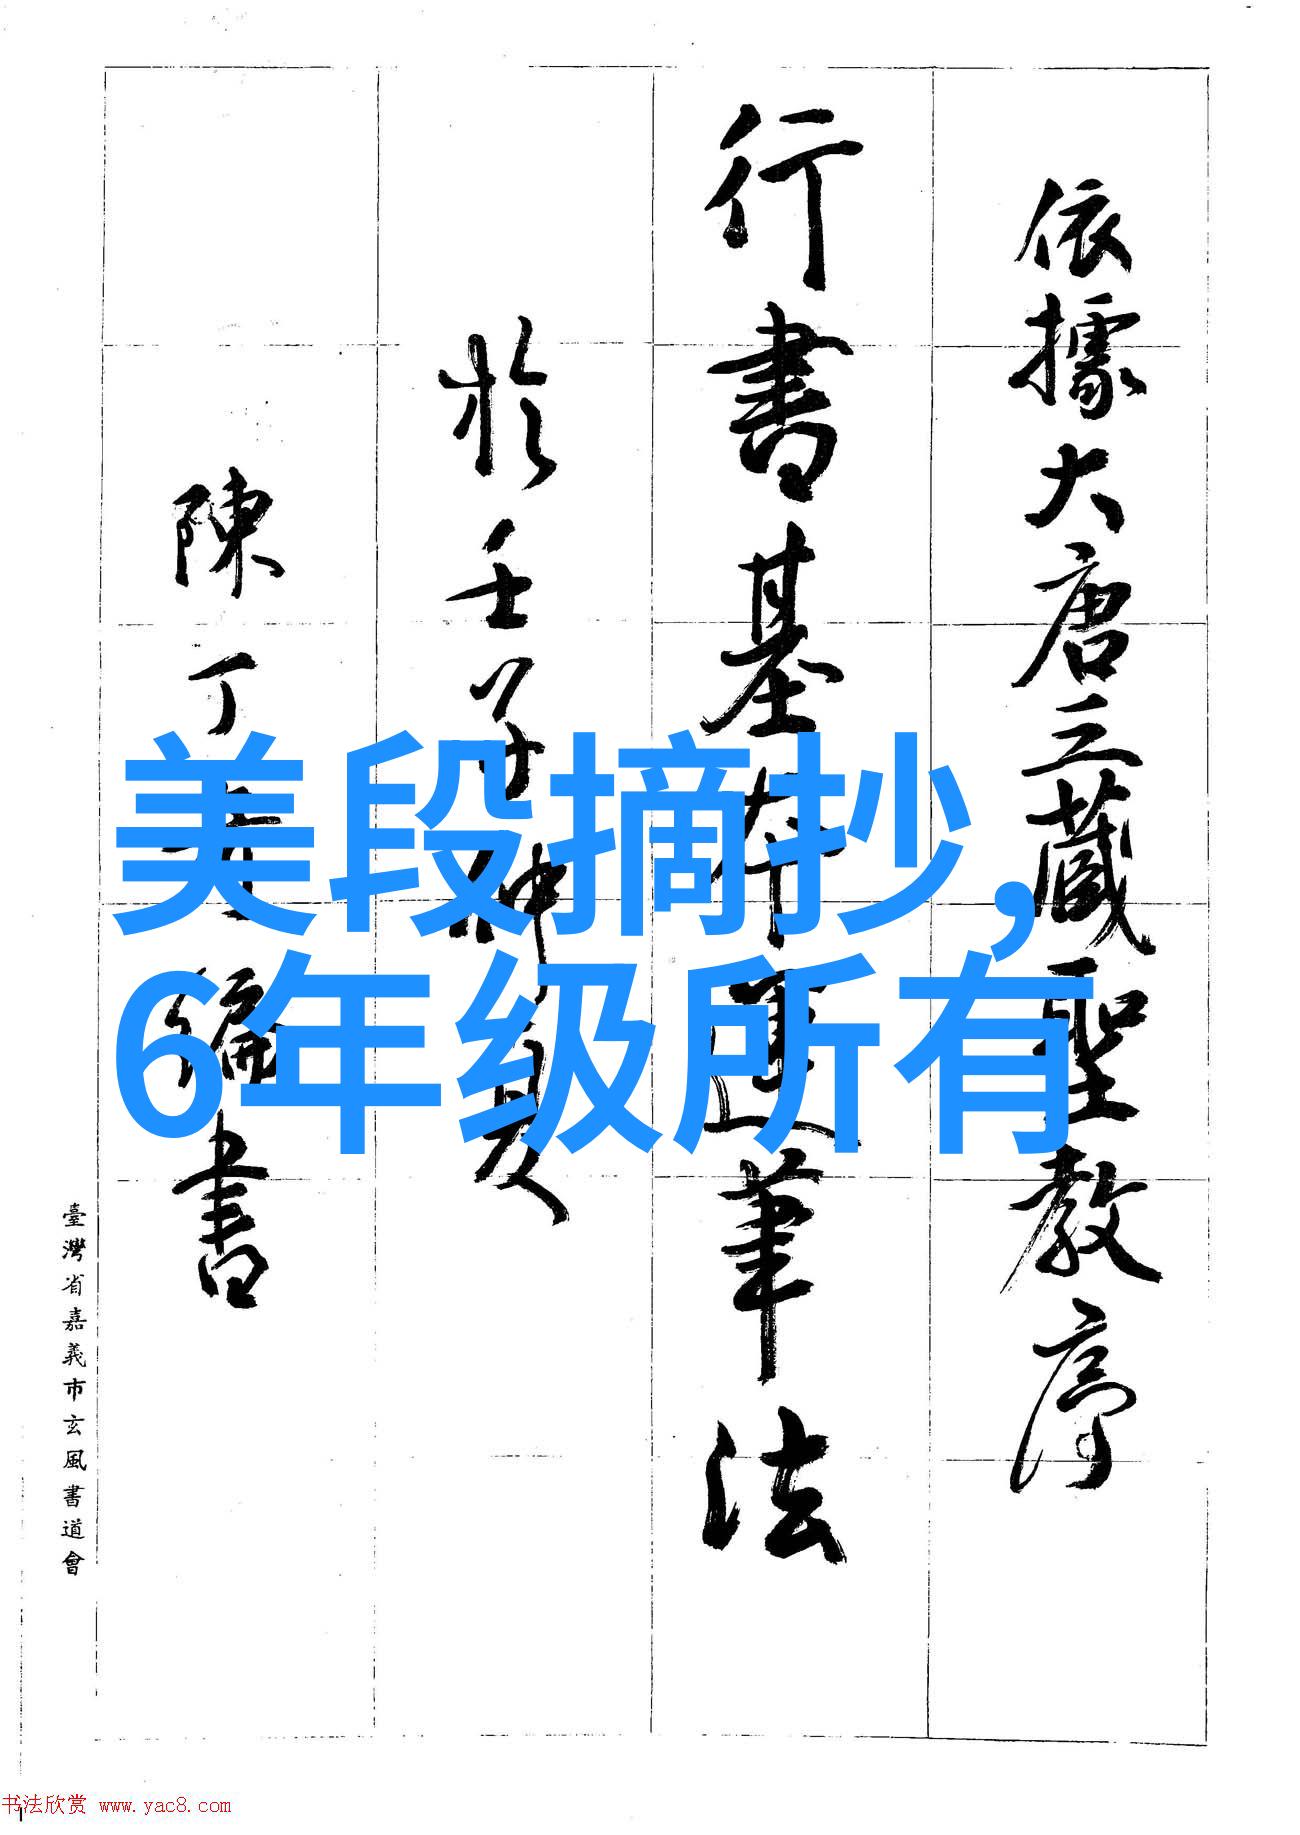 依據大唐三藏聖教序
行書基本運筆法
於壬子仲夏
陳丁奇編書
臺灣省嘉義市玄風書道會
美段摘抄,
6年级所有
书法欣赏 www.yac8.com
1